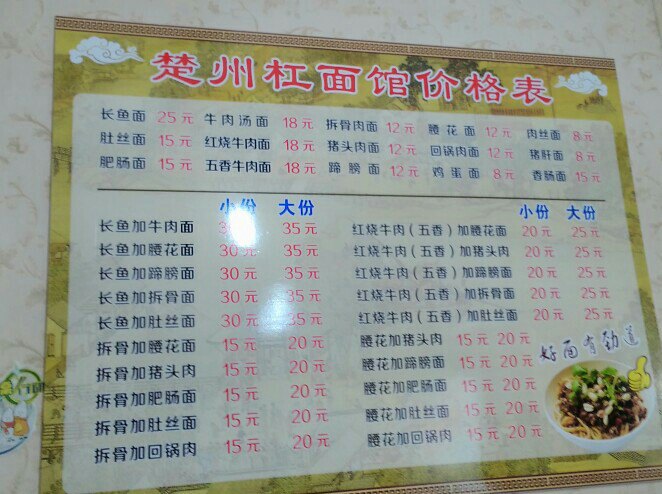 楚州杠面馆价格表
长鱼面 25元 牛肉汤面 18元 拆骨肉面 12元 腰花面 12元 肉丝面 8元
肚丝面 15元 红烧牛肉面 18元 猪头肉面 12元 回锅肉面 12元 猪肝面 8元
肥肠面 15元 五香牛肉面 18元 蹄膀面 12元 鸡蛋面 8元 香肠面 15元
小份 大份 小份 大份
长鱼加牛肉面 30元 35元 红烧牛肉(五香)加腰花面 20元 25元
长鱼加腰花面 30元 35元 红烧牛肉(五香)加猪头肉 20元 25元
长鱼加蹄膀面 30元 35元 红烧牛肉(五香)加蹄膀面 20元 25元
长鱼加拆骨面 30元 35元 红烧牛肉(五香)加拆骨面 20元 25元
长鱼加肚丝面 30元 35元 红烧牛肉(五香)加肚丝面 20元 25元
拆骨加腰花面 15元 20元 腰花加猪头肉 15元 20元
拆骨加猪头肉 15元 20元 腰花加蹄膀面 15元 20元
拆骨加肥肠面 15元 20元 腰花加肥肠面 15元 20元
拆骨加肚丝面 15元 20元 腰花加肚丝面 15元 20元
拆骨加回锅肉 15元 20元 腰花加回锅肉 15元 20元
好面有劲道